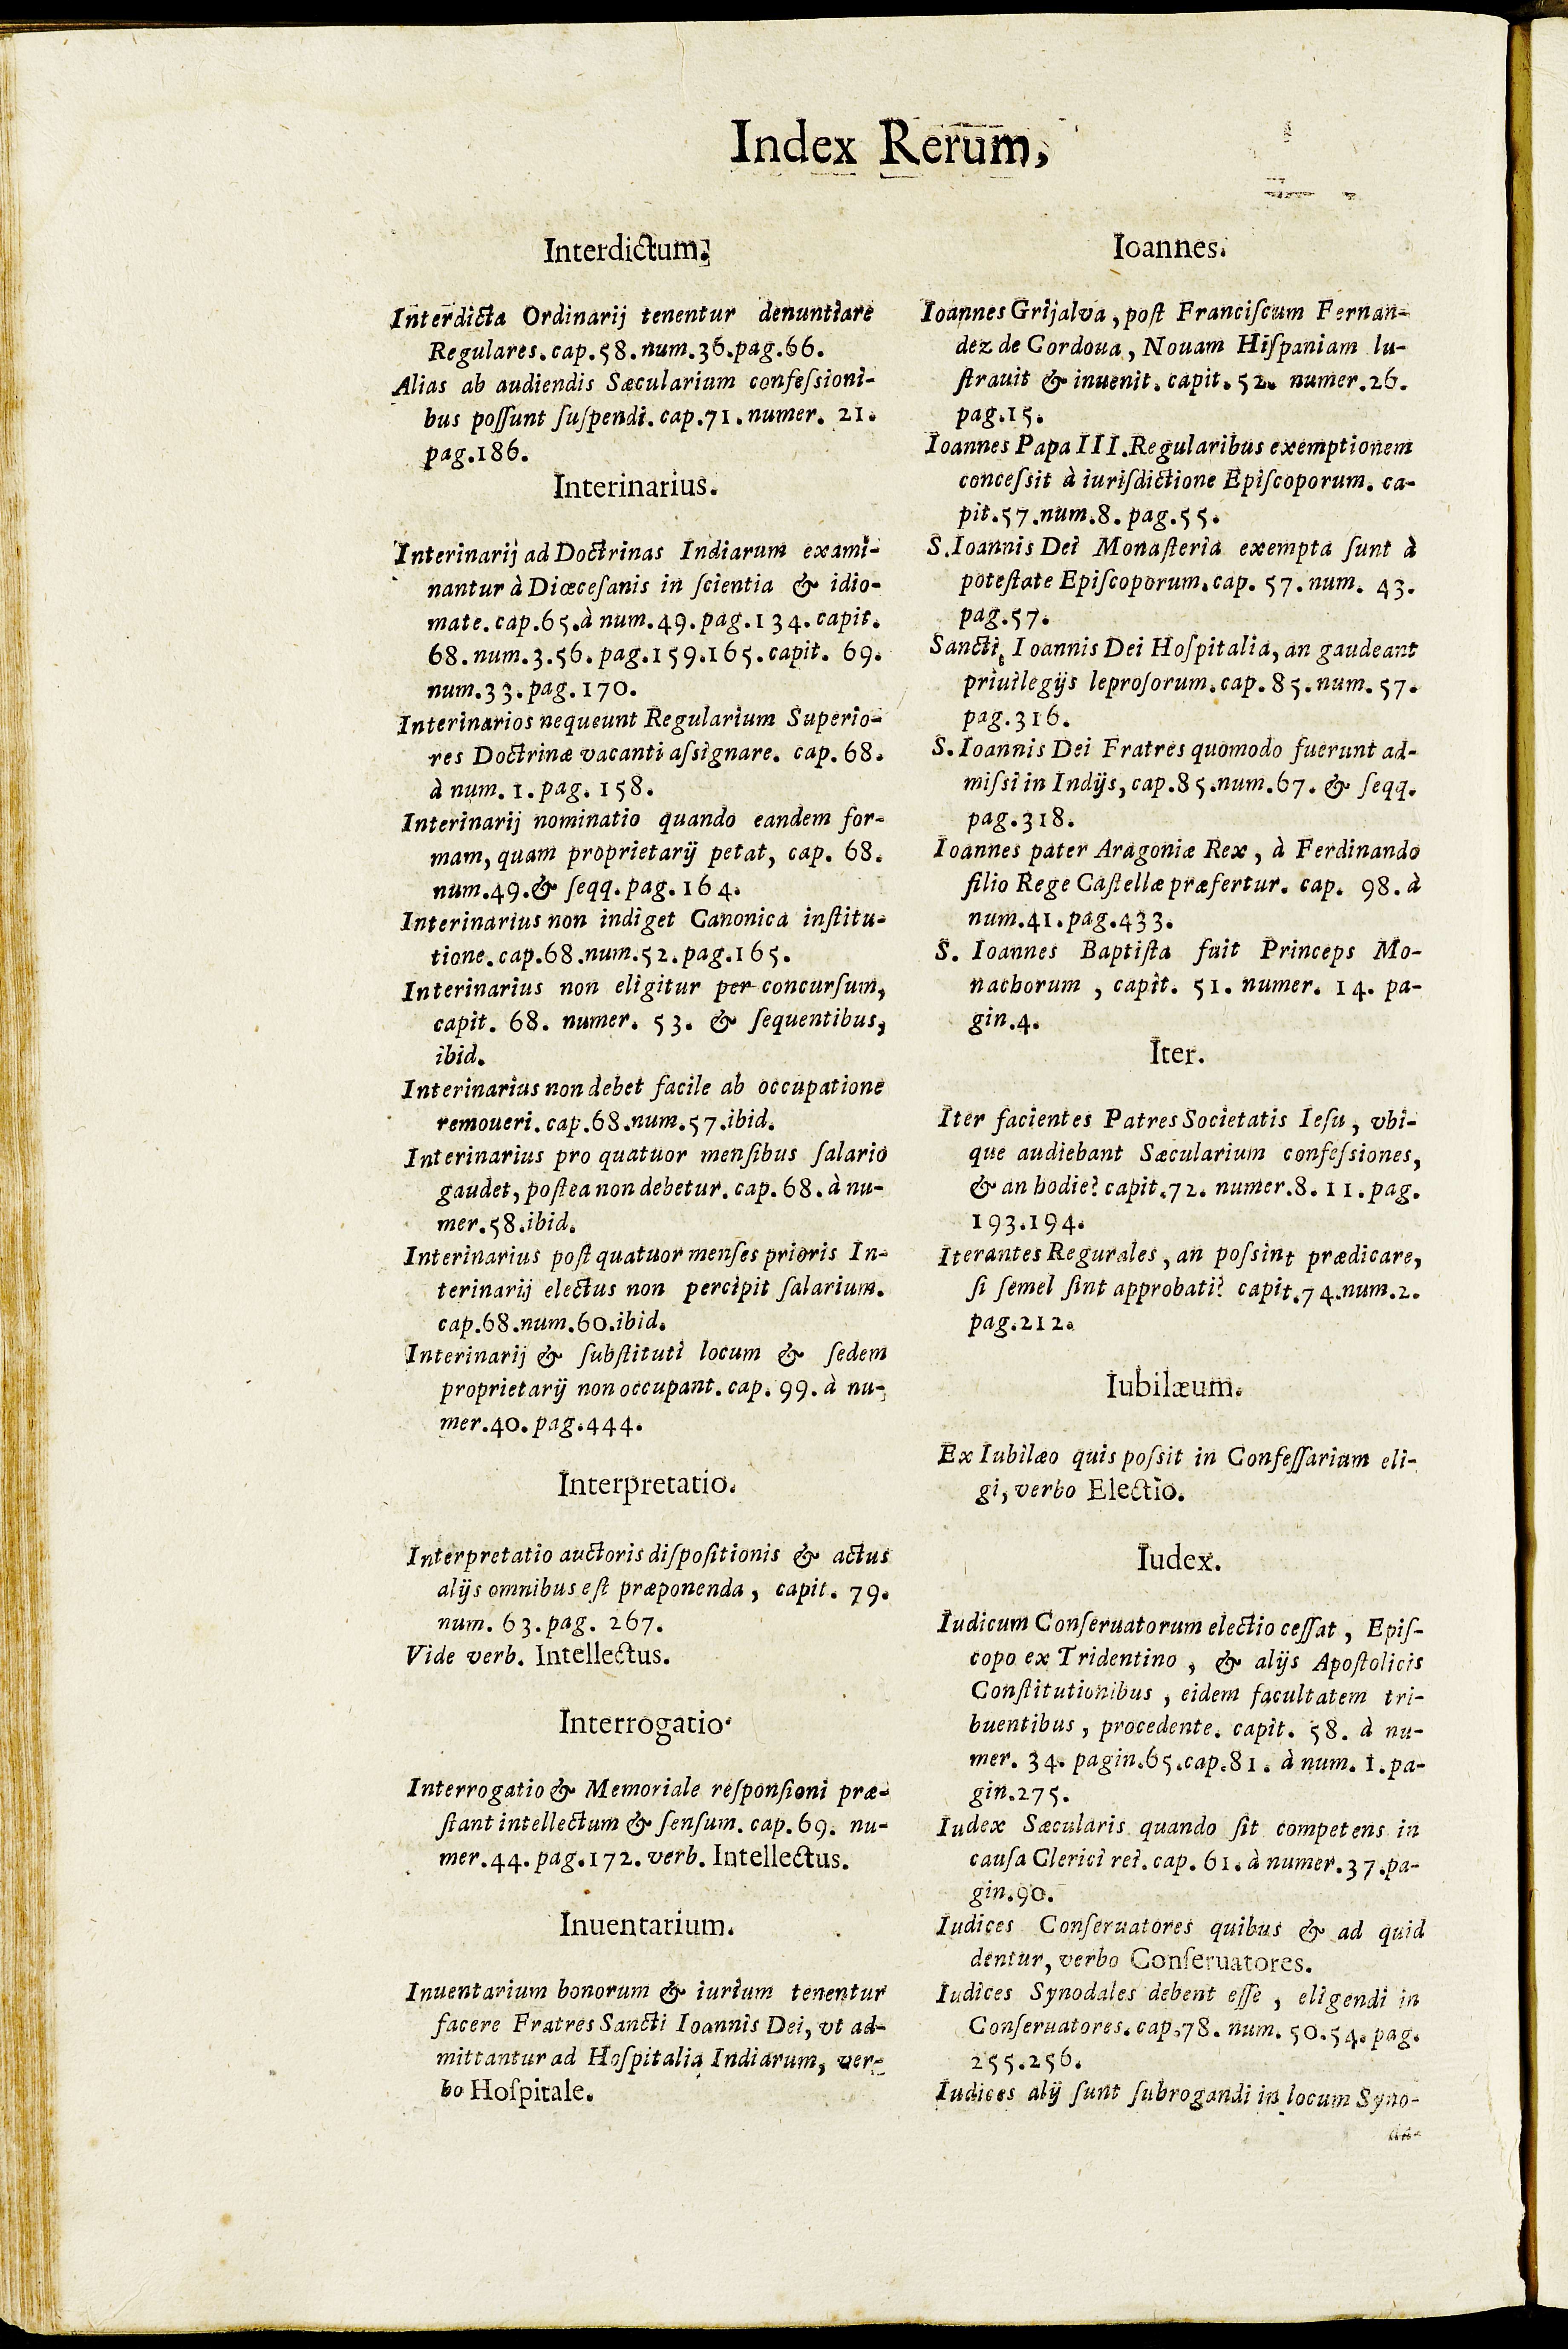 Index Rerum,
Interdictum.
Interdicta Ordinarij tenentur denuntiare
Regulares. cap. 58. num. 36. pag. 66.
Alias ab audiendis Sæcularium confeſsioni-
bus poſſunt ſuſpendi. cap. 71. numer. 21.
pag. 186.
Interinarius.
Interinarij ad Doctrinas Indiarum exami-
nantur à Diœceſanis in ſcientia & idio-
mate. cap. 65. à num. 49. pag. 134. capit.
68. num. 3. 56. pag. 159. 165. capit. 69.
num. 33. pag. 170.
Interinarios nequeunt Regularium Superio-
res Doctrinæ vacanti aſsignare. cap. 68.
à num. 1. pag. 158.
Interinarij nominatio quando eandem for-
mam, quam proprietarij petat, cap. 68.
num. 49. & ſeqq. pag. 164.
Interinarius non indiget Canonica inſtitu-
tione. cap. 68. num. 52. pag. 165.
Interinarius non eligitur per concurſum,
capit. 68. numer. 53. & ſequentibus,
ibid.
Interinarius non debet facile ab occupatione
remoueri. cap. 68. num. 57. ibid.
Interinarius pro quatuor menſibus ſalario
gaudet, poſtea non debetur. cap. 68. à nu-
mer. 58. ibid.
Interinarius poſt quatuor menſes prioris In-
terinarij electus non percipit ſalarium.
cap. 68. num. 60. ibid.
Interinarij & ſubſtituti locum & ſedem
proprietarij non occupant. cap. 99. à nu-
mer. 40. pag. 444.
Interpretatio.
Interpretatio auctoris diſpoſitionis & actus
alijs omnibus eſt præponenda, capit. 79.
num. 63. pag. 267.
Vide verb. Intellectus.
Interrogatio.
Interrogatio & Memoriale reſponſioni præ-
ſtant intellectum & ſenſum. cap. 69. nu-
mer. 44. pag. 172. verb. Intellectus.
Inuentarium.
Inuentarium bonorum & iurium tenentur
facere Fratres Sancti Ioannis Dei, vt ad-
mittantur ad Hoſpitalia Indiarum, ver-
bo Hoſpitale.
Ioannes.
Ioannes Grijalva, poſt Franciſcum Fernan-
dez de Cordoua, Nouam Hiſpaniam lu-
ſtrauit & inuenit. capit. 52. numer. 26.
pag. 15.
Ioannes Papa III. Regularibus exemptionem
conceſsit à iuriſdictione Epiſcoporum. ca-
pit. 57. num. 8. pag. 55.
S. Ioannis Dei Monaſteria exempta ſunt à
poteſtate Epiſcoporum. cap. 57. num. 43.
pag. 57.
Sancti, Ioannis Dei Hoſpitalia, an gaudeant
priuilegijs leproſorum. cap. 85. num. 57.
pag. 316.
S. Ioannis Dei Fratres quomodo fuerunt ad-
miſsi in Indijs, cap. 85. num. 67. & ſeqq.
pag. 318.
Ioannes pater Aragoniæ Rex, à Ferdinando
filio Rege Caſtellæ præfertur. cap. 98. à
num. 41. pag. 433.
S. Ioannes Baptiſta fuit Princeps Mo-
nachorum, capit. 51. numer. 14. pa-
gin. 4.
Iter.
Iter facientes Patres Societatis Ieſu, vbi-
que audiebant Sæcularium confeſsiones,
& an hodie? capit. 72. numer. 8. 11. pag.
193. 194.
Iterantes Regurales, an poſsint prædicare,
ſi ſemel ſint approbati? capit. 74. num. 2.
pag. 212.
Iubilæum.
Ex Iubilæo quis poſsit in Confeſſarium eli-
gi, verbo Electio.
Iudex.
Iudicum Conſeruatorum electio ceſſat, Epiſ-
copo ex Tridentino, & alijs Apoſtolicis
Conſtitutionibus, eidem facultatem tri-
buentibus, procedente. capit. 58. à nu-
mer. 34. pagin. 65. cap. 81. à num. 1. pa-
gin. 275.
Iudex Sæcularis quando ſit competens in
cauſa Clerici rei. cap. 61. à numer. 37. pa-
gin. 90.
Iudices Conſeruatores quibus & ad quid
dentur, verbo Conſeruatores.
Iudices Synodales debent eſſe, eligendi in
Conſeruatores. cap. 78. num. 50. 54. pag.
255. 256.
Iudices alij ſunt ſubrogandi in locum Syno-